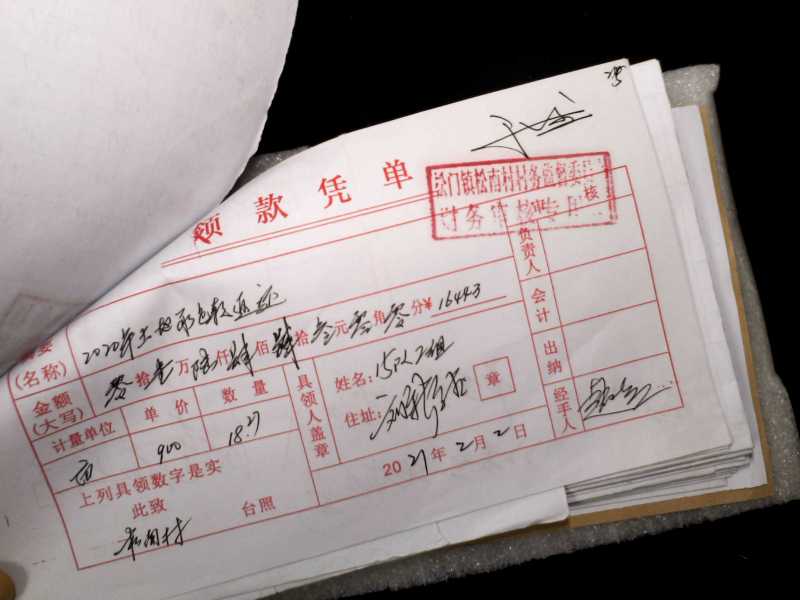 领款凭单
松门镇松南村村务监督委员
财务审核专用
核
2020年土地承包款返还
(名称)
负责人
金额
(大写)
零拾壹万陆仟肆佰肆拾叁元零角零分¥16443
会计
计量单位 单价 数量
具领人盖章
姓名:15队2组
住址:
章
出纳
亩 900 18.27
经手人
上列具领数字是实
2021年2月2日
此致 台照
松南村